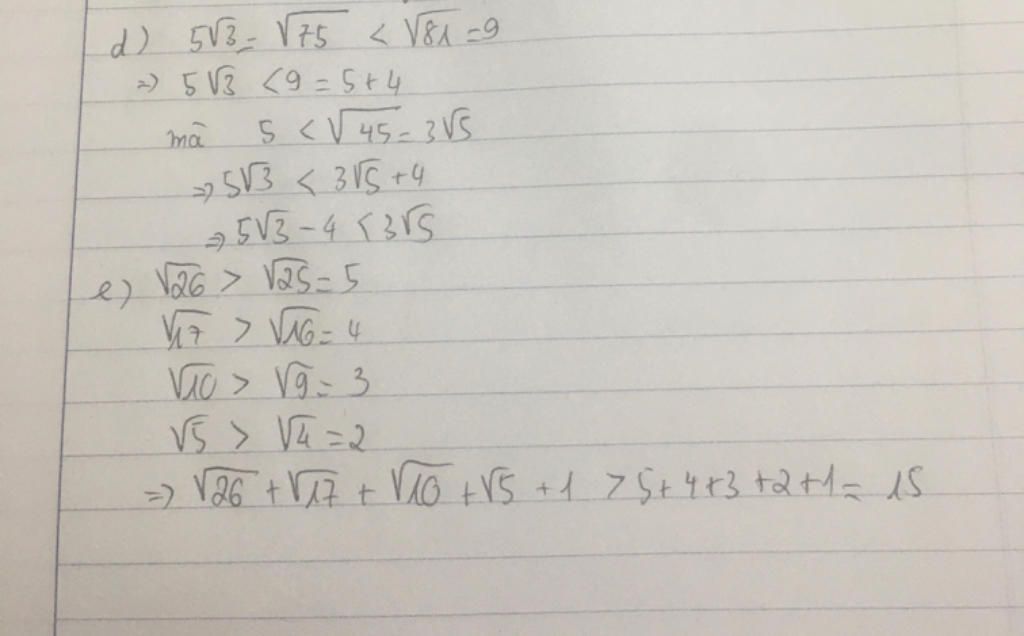 d) 5√3 = √75 < √81 = 9
=> 5√3 < 9 = 5 + 4
mà 5 < √45 = 3√5
=> 5√3 < 3√5 + 4
=> 5√3 - 4 < 3√5
e) √26 > √25 = 5
√17 > √16 = 4
√10 > √9 = 3
√5 > √4 = 2
=> √26 + √17 + √10 + √5 + 1 > 5 + 4 + 3 + 2 + 1 = 15